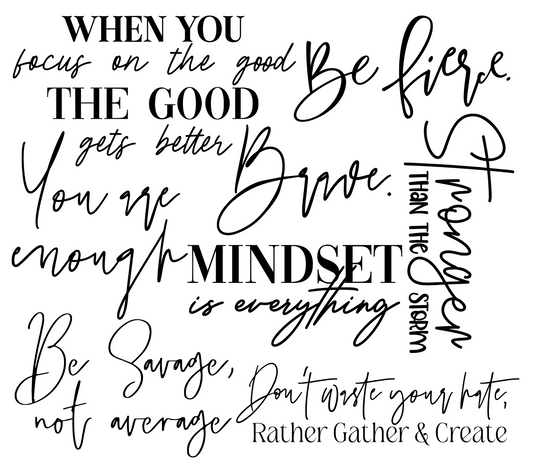 WHEN YOU
focus on the good
THE GOOD
gets better
Be fierce.
You are
enough
Brave.
Stronger
THAN THE STORM
MINDSET
is everything
Be Savage,
not average
Don't waste your hate,
Rather Gather & Create